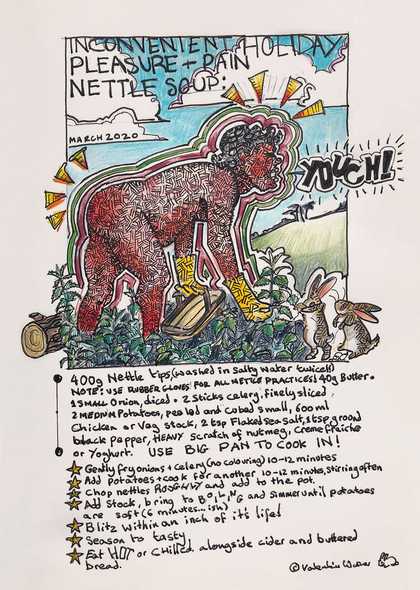 INCONVENIENT HOLIDAY
PLEASURE + PAIN
NETTLE SOUP:
MARCH 2020
YOUCH!
400g Nettle tips (washed in salty water twice!!)
NOTE: USE RUBBER GLOVES FOR ALL NETTLE PRACTICES! 40g Butter.
1 SMALL Onion, diced. 2 Sticks celery, finely sliced,
2 MEDIUM Potatoes, peeled and cubed small, 600ml
Chicken or Veg stock, 2 tsp Flaked Sea Salt, 1 tsp ground
black pepper, HEAVY scratch of nutmeg, Creme fraiche
or Yoghurt. USE BIG PAN TO COOK IN!
Gently fry onions + celery (no colouring) 10-12 minutes
Add Potatoes + cook for another 10-12 minutes, stirring often
Chop nettles ROUGHLY and add to the pot.
Add stock, bring to BOILING and simmer until potatoes
are soft (6 minutes...ish)
Blitz within an inch of it's life!
Season to tasty
Eat HOT or CHILLED alongside cider and buttered
bread.
© Valentine